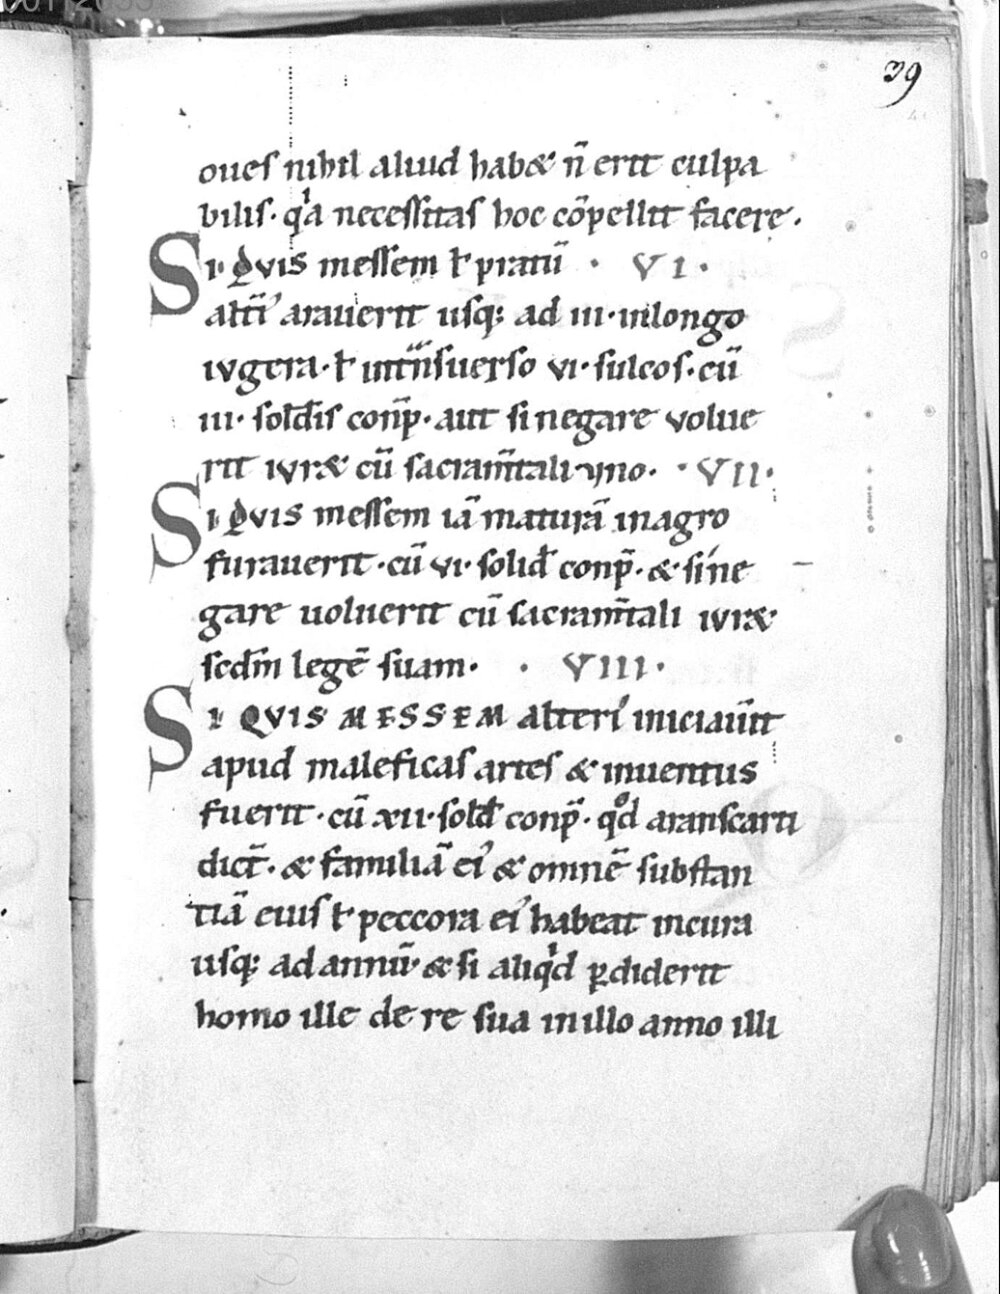 39
oues nihil aliud hab& n̄ erit culpa
bilis. qͥa necessitas hoc cōpellit facere.
Si Qvis messem ł pratū · VI ·
altī arauerit usq; ad iii·inlongo
ivgera·ł intrn̄suerso vi·sulcos·cū
iii·solđis conp̄·aut si negare volue
rit ivr& cū sacram̄tali uno. ·VII·
Si Qvis messem iā maturā inagro
furauerit·cū vi·soliđ conp̄·& sine
gare voluerit cū sacram̄tali ivr&
scdm̄ legē suam· · VIII·
Si QVIS MESSEM alteri iniciaūit
apud maleficas artes & inuentus
fuerit·cū xii·solđ conp̄·qͦd aranscarti
dict̄·& familiā ei' & omnē substan
tiā eius ł peccora ei' habeat incura
usq; ad annū·& si aliqͥd ꝑdiderit
homo ille de re sua inillo anno illi